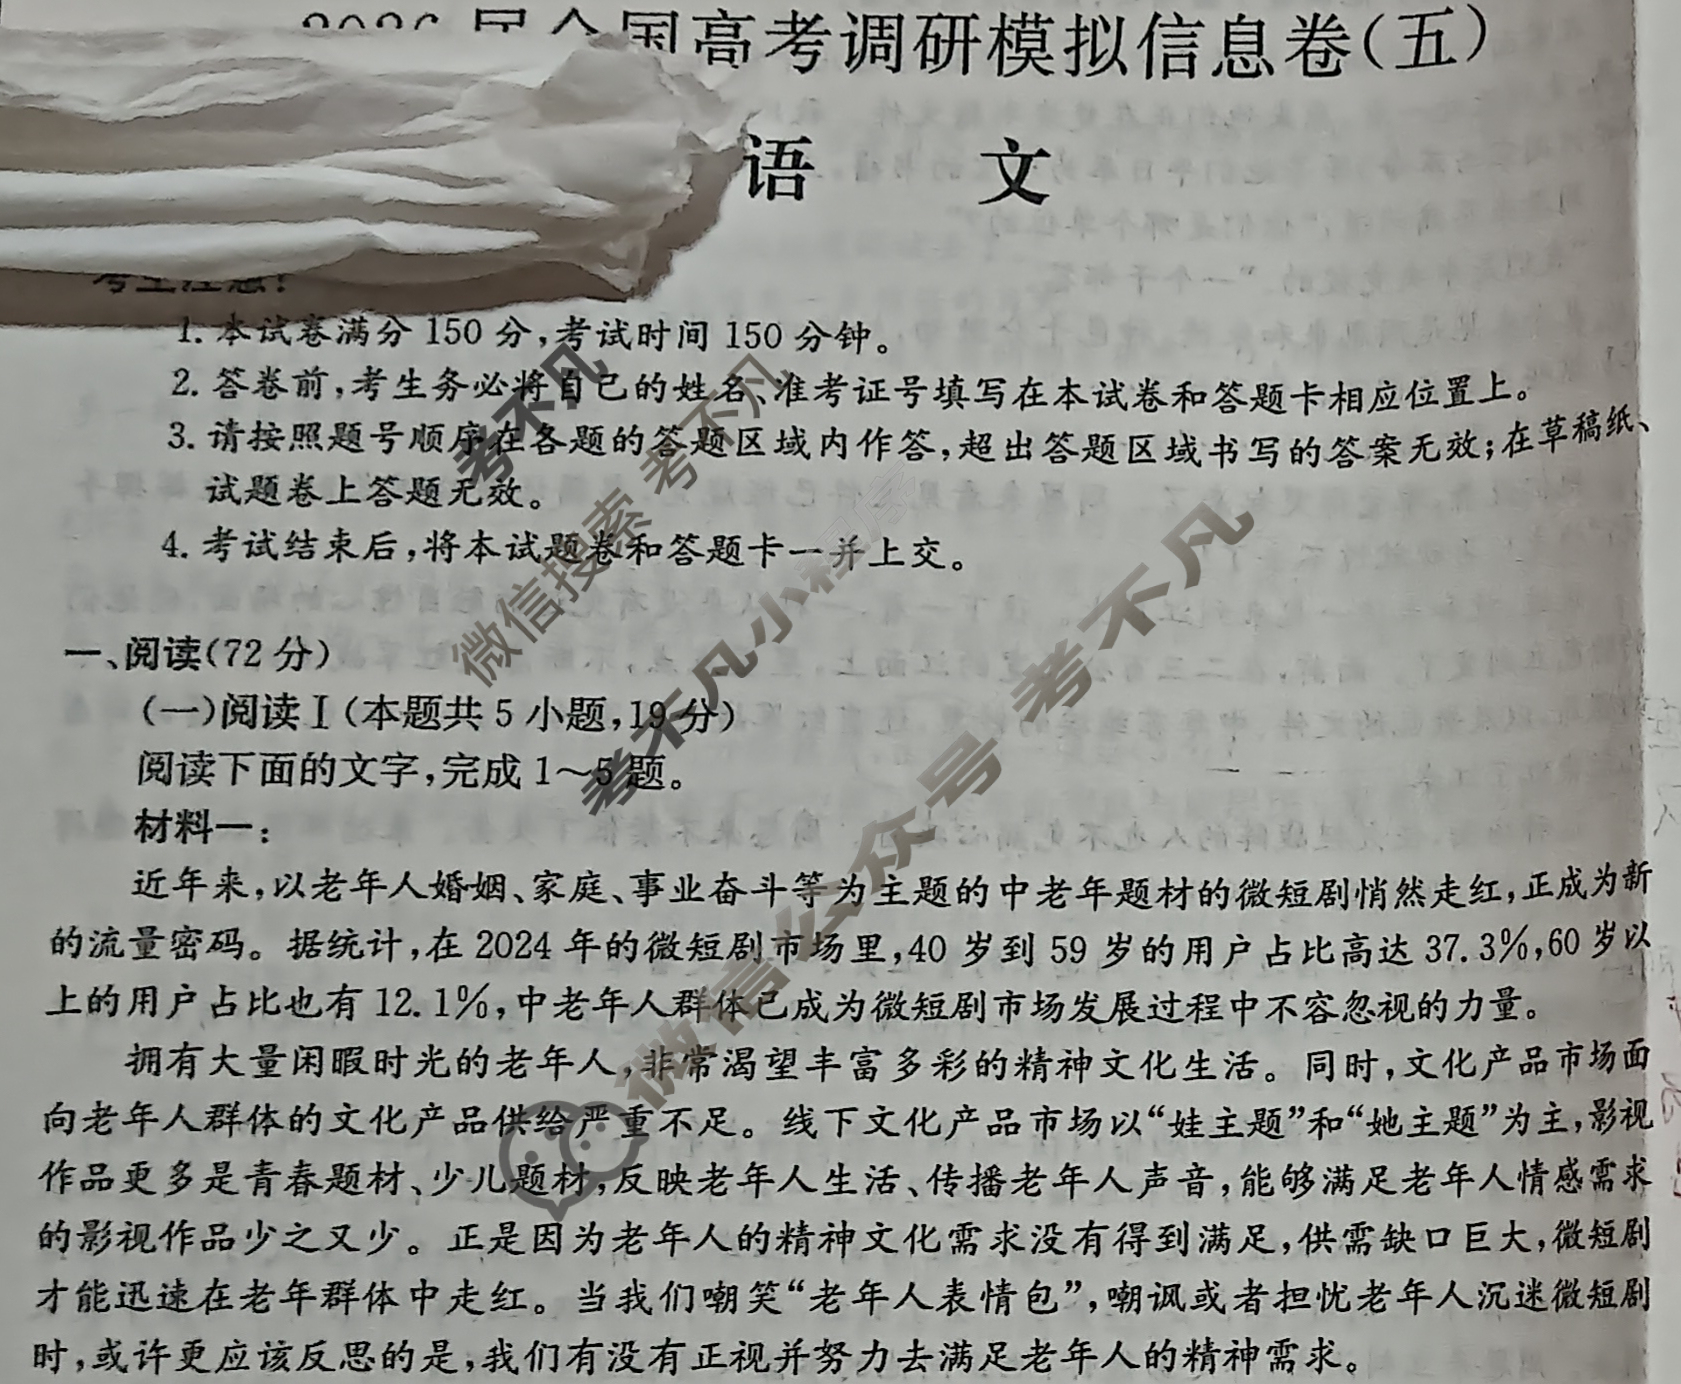 国高考调研模拟信息卷(五)
语 文
考生注意:
1. 本试卷满分 150 分,考试时间 150 分钟。
2. 答卷前,考生务必将自己的姓名、准考证号填写在本试卷和答题卡相应位置上。
3. 请按照题号顺序在各题的答题区域内作答,超出答题区域书写的答案无效;在草稿纸、
试题卷上答题无效。
4. 考试结束后,将本试题卷和答题卡一并上交。
一、阅读(72 分)
(一)阅读Ⅰ(本题共 5 小题,19 分)
阅读下面的文字,完成 1~5 题。
材料一:
近年来,以老年人婚姻、家庭、事业奋斗等为主题的中老年题材的微短剧悄然走红,正成为新
的流量密码。据统计,在 2024 年的微短剧市场里,40 岁到 59 岁的用户占比高达 37.3%,60 岁以
上的用户占比也有 12.1%,中老年人群体已成为微短剧市场发展过程中不容忽视的力量。
拥有大量闲暇时光的老年人,非常渴望丰富多彩的精神文化生活。同时,文化产品市场面
向老年人群体的文化产品供给严重不足。线下文化产品市场以“娃主题”和“她主题”为主,影视
作品更多是青春题材、少儿题材,反映老年人生活、传播老年人声音,能够满足老年人情感需求
的影视作品少之又少。正是因为老年人的精神文化需求没有得到满足,供需缺口巨大,微短剧
才能迅速在老年群体中走红。当我们嘲笑“老年人表情包”,嘲讽或者担忧老年人沉迷微短剧
时,或许更应该反思的是,我们有没有正视并努力去满足老年人的精神需求。
考不凡
微信搜索 考不凡
考不凡小程序
微信公众号 考不凡